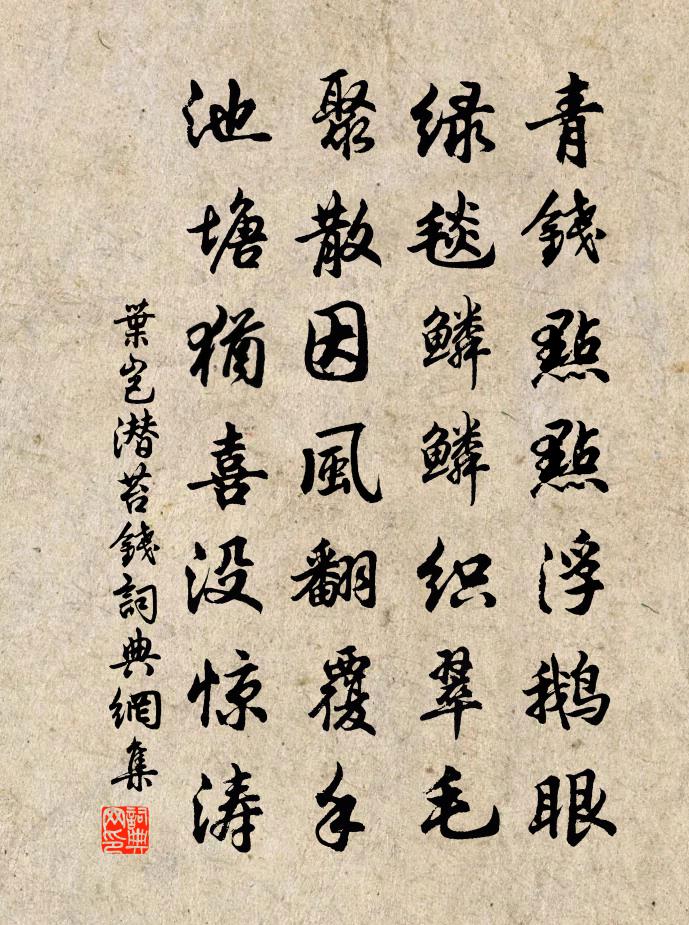 青錢點點浮鵝眼
绿毯鱗鱗织翠毛
聚散因風翻覆手
池塘猶喜没惊涛
葉岂潜苔錢詞典網集
詞典网印